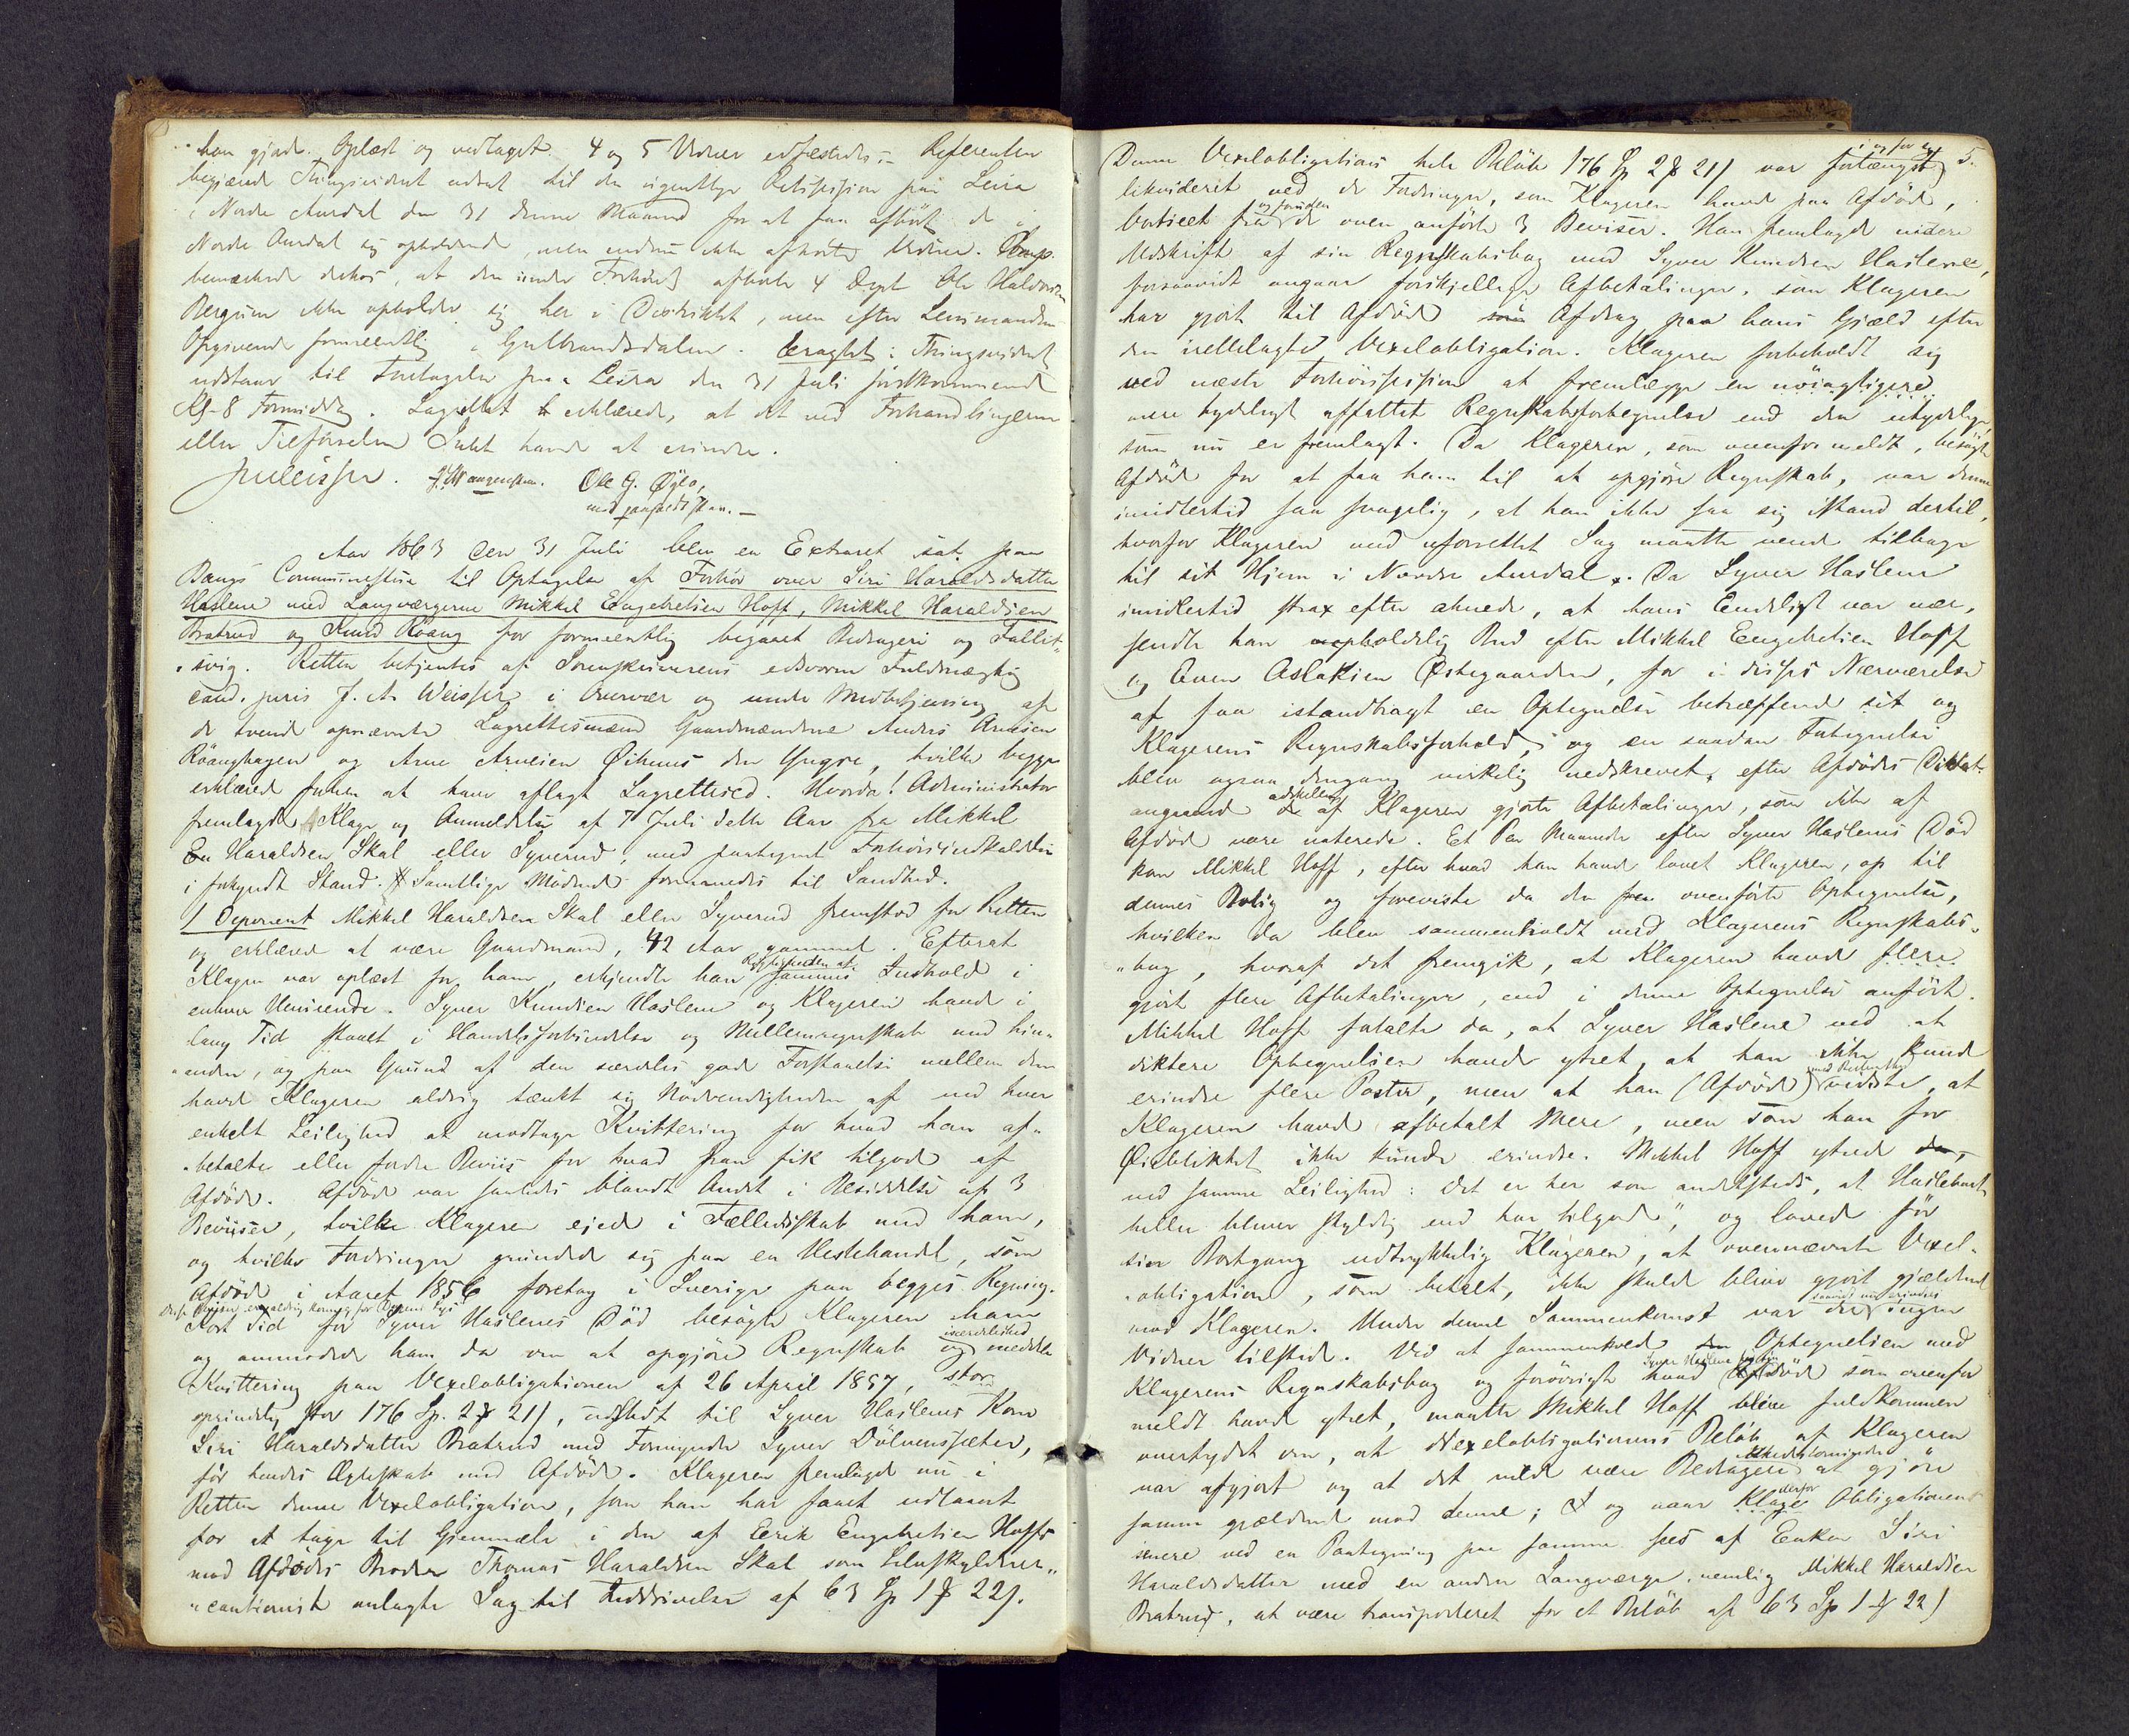 han gjorde. Oplæst og vedtaget. 4 og 5 Vidner edfæstedes. Referenten
begjærede Thingsvidnet udsat til den egentlige Retssession paa Leira
i Nordre Aurdal den 31 denne Maaned for at faa afhørt de i
Nordre Aurdal sig opholdende, men endnu ikke afhørte Vidner. Comp.
bemærkede derhos, at den under Forhøret afhørte 4 Dept Ole Halvorsen
Bergum ikke opholder sig her i Distriktet, men efter Lensmandens
Opgivende formeentlig i Gulbrandsdalen. Eragtet: Thingsvidnet
udstaar til Foretagelse paa Leira den 31 Juli førstkommende
Kl. 8 Formiddag. Lagrettet erklærede, at det ved Forhandlingerne
eller Tilførselen Intet havde at erindre.
JWeisser. Ole G. Øylo,
med paaholdt Pen.
Aar 1863 den 31 Juli blev en Extraret sat paa
Bangs Communestue til Optagelse af Forhør over Siri Haraldsdatter
Haslene med Laugværgerne Mikkel Engebretsen Hoff, Mikkel Haraldsen
Bratrud og Knud Roang for formeentlig begaaet Bedrageri og Fallit-
svig. Retten betjentes af Sorenskriverens edsvorne Fuldmægtig
cand. juris J. A. Weisser i Overvær og under Medbetjening af
de tvende opnævnte Lagrettesmænd Gaardmændene Anders Arnesen
Röanghagen og Arne Arnesen Öihuus den Yngre, hvilke begge
erklærede forhen at have aflagt Lagretteed. Hvorda! Administrator
fremlagde Klage og Anmeldelse af 7 Juli dette Aar fra Mikkel
Haraldsen Skal eller Syverud, med paategnet Forhörsindkaldelse
i forkyndt Stand. Samtlige Mödende formanedes til Sandhed.
1 Deponent Mikkel Haraldsen Skal eller Syverud fremstod for Retten
og erklærede at være Gaardmand, 42 Aar gammel. Efterat
Klagen var oplæst for ham, erkjendte han Rigtigheden af sammes Indhold i
enhver Henseende. Syver Knudsen Haslene og Klageren havde i
lang Tid staaet i Handelsforbindelse og Mellemregnskab med hin-
anden, og paa Grund af den særdeles gode Forstaaelse mellem dem
havde Klageren aldrig tænkt sig Nödvendigheden af ved hver
enkelt Leilighed at modtage Kvittering for hvad han af-
betalte eller fordre Beviis for hvad han fik tilgode af
Afdöde. Afdöde var saaledes blandt Andet i Besiddelse af 3
Beviser, hvilke Klageren ejede i Fællesskab med ham,
og hvilke Fordringer grundede sig paa en Hestehandel, som
Afdöde i Aaret 1856 foretog i Sverige paa begges Regning.
Kort Tid för Syver Haslenes Död besögte Klageren ham
og anmodede ham da om at opgjöre Regnskab og isærdeleshed meddele
Kvittering paa Vexelobligationen af 26 April 1857, stor
oprindelig stor 176 Sp. 2 ₰ 21 ſ, udstedt til Syver Haslenes Kone
Siri Haraldsdatter Bratrud med Formynder Syver Dölvenssæter,
för hendes Ægteskab med Afdöde. Klageren fremlagde nu i
Retten denne Vexelobligation, som han har faaet udlaant
for at tage til Gjenmæle i den af Eerik Engebretsen Hoff
mod Afdödes Broder Thomas Haraldsen Skal som Selvskyldner-
cautionist anlagte Sag til Inddrivelse af 63 Sp 1 ₰ 22 ſ.
5.
Denne Vexelobligations hele Belöb 176 Sp 2 ₰ 21 ſ var i og for sig forlængst
likvideret ved de Fordringer, som Klageren havde paa Afdöde,
bortseet fra og foruden de oven anförte 3 Beviser. Han fremlagde videre
Udskrift af sin Regnskabsbog med Syver Knudsen Haslene,
forsaavidt angaar forskjellige Afbetalinger, som Klageren
har gjort til Afdöde som Afdrag paa hans Gjæld efter
den irettelagte Vexelobligation. Klageren forbeholdt sig
ved næste Forhörssession at fremlægge en nöiagtigere
mere tydeligt affattet Regnskabsfortegnelse end den utydelige,
som nu er fremlagt. Da Klageren, som ovenfor meldt, besögte
Afdöde for at faa ham til at opgjöre Regnskab, var denne
imidlertid saa svagelig, at han ikke saa sig istand dertil,
hvorfor Klageren med uforrettet Sag maatte vende tilbage
til sit Hjem i Nordre Aurdal. Da Syver Haslene
imidlertid strax efter ahnede, at hans Endeligt var nær,
sendte han uopholdelig Bud efter Mikkel Engebretsen Hoff
og Even Aslaksen Östegaarden, for i disses Nærværelse
at faa istandbragt en Optegnelse betræffende sit og
Klagerens Regnskabsforhold, og en saadan Fortegnelse
blev ogsaa dengang virkelig nedskrevet, efter Afdödes Diktat
angaaende adskillige af Klageren gjorte Afbetalinger, som ikke af
Afdöde vare noterede. Et Par Maaneder efter Syver Haslenes Död
kom Mikkel Hoff, efter hvad han havde lovet Klageren, op til
dennes Bolig og foreviste da den ovenförte Optegnelse,
hvilken da blev sammenholdt med Klagerens Regnskabs-
bog, hvoraf det fremgik, at Klageren havde flere
gjort flere Afbetalinger, end i denne Optegnelse anfört.
Mikkel Hoff fortalte da, at Syver Haslene ved at
diktere Optegnelsen havde ytret, at han ikke kunde
erindre flere Poster, men at han (Afdöde) med Bestemthed vidste, at
Klageren havde afbetalt Mere, men som han for
Öieblikket ikke kunde erindre. Mikkel Hoff ytrede da,
ved samme Leilighed: "det er her som andetsteds, at Haslene
heller bliver skyldig end har tilgode", og lovede för
sin Bortgang udtrykkelig Klageren, at ovennævnte Vexel-
obligation, som betalt, ikke skulde blive gjort gjældende
mod Klageren. Under denne Sammenkomst var der saavidt nu erindres ingen
Vidner tilstede. Ved at sammenholde Optegnelsen med
Klagerens Regnskabsbog og forövrigt hvad Syver Haslene Afdöde som ovenfor
meldt havde ytret, maatte Mikkel Hoff blive fuldkommen
overtydet om, at Vexelobligationens Belöb af Klageren
var afgjort og at det vilde være Bedrageri at gjöre
samme gjældende mod denne; og naar derfor Obligationen
senere ved en Paategning paa samme sees af Enken Siri
Haraldsdatter med en anden Laugværge, nemlig Mikkel Haraldsen
Bratrud, at være transporteret for et Belöb af 63 Sp 1 ₰ 22 ſ